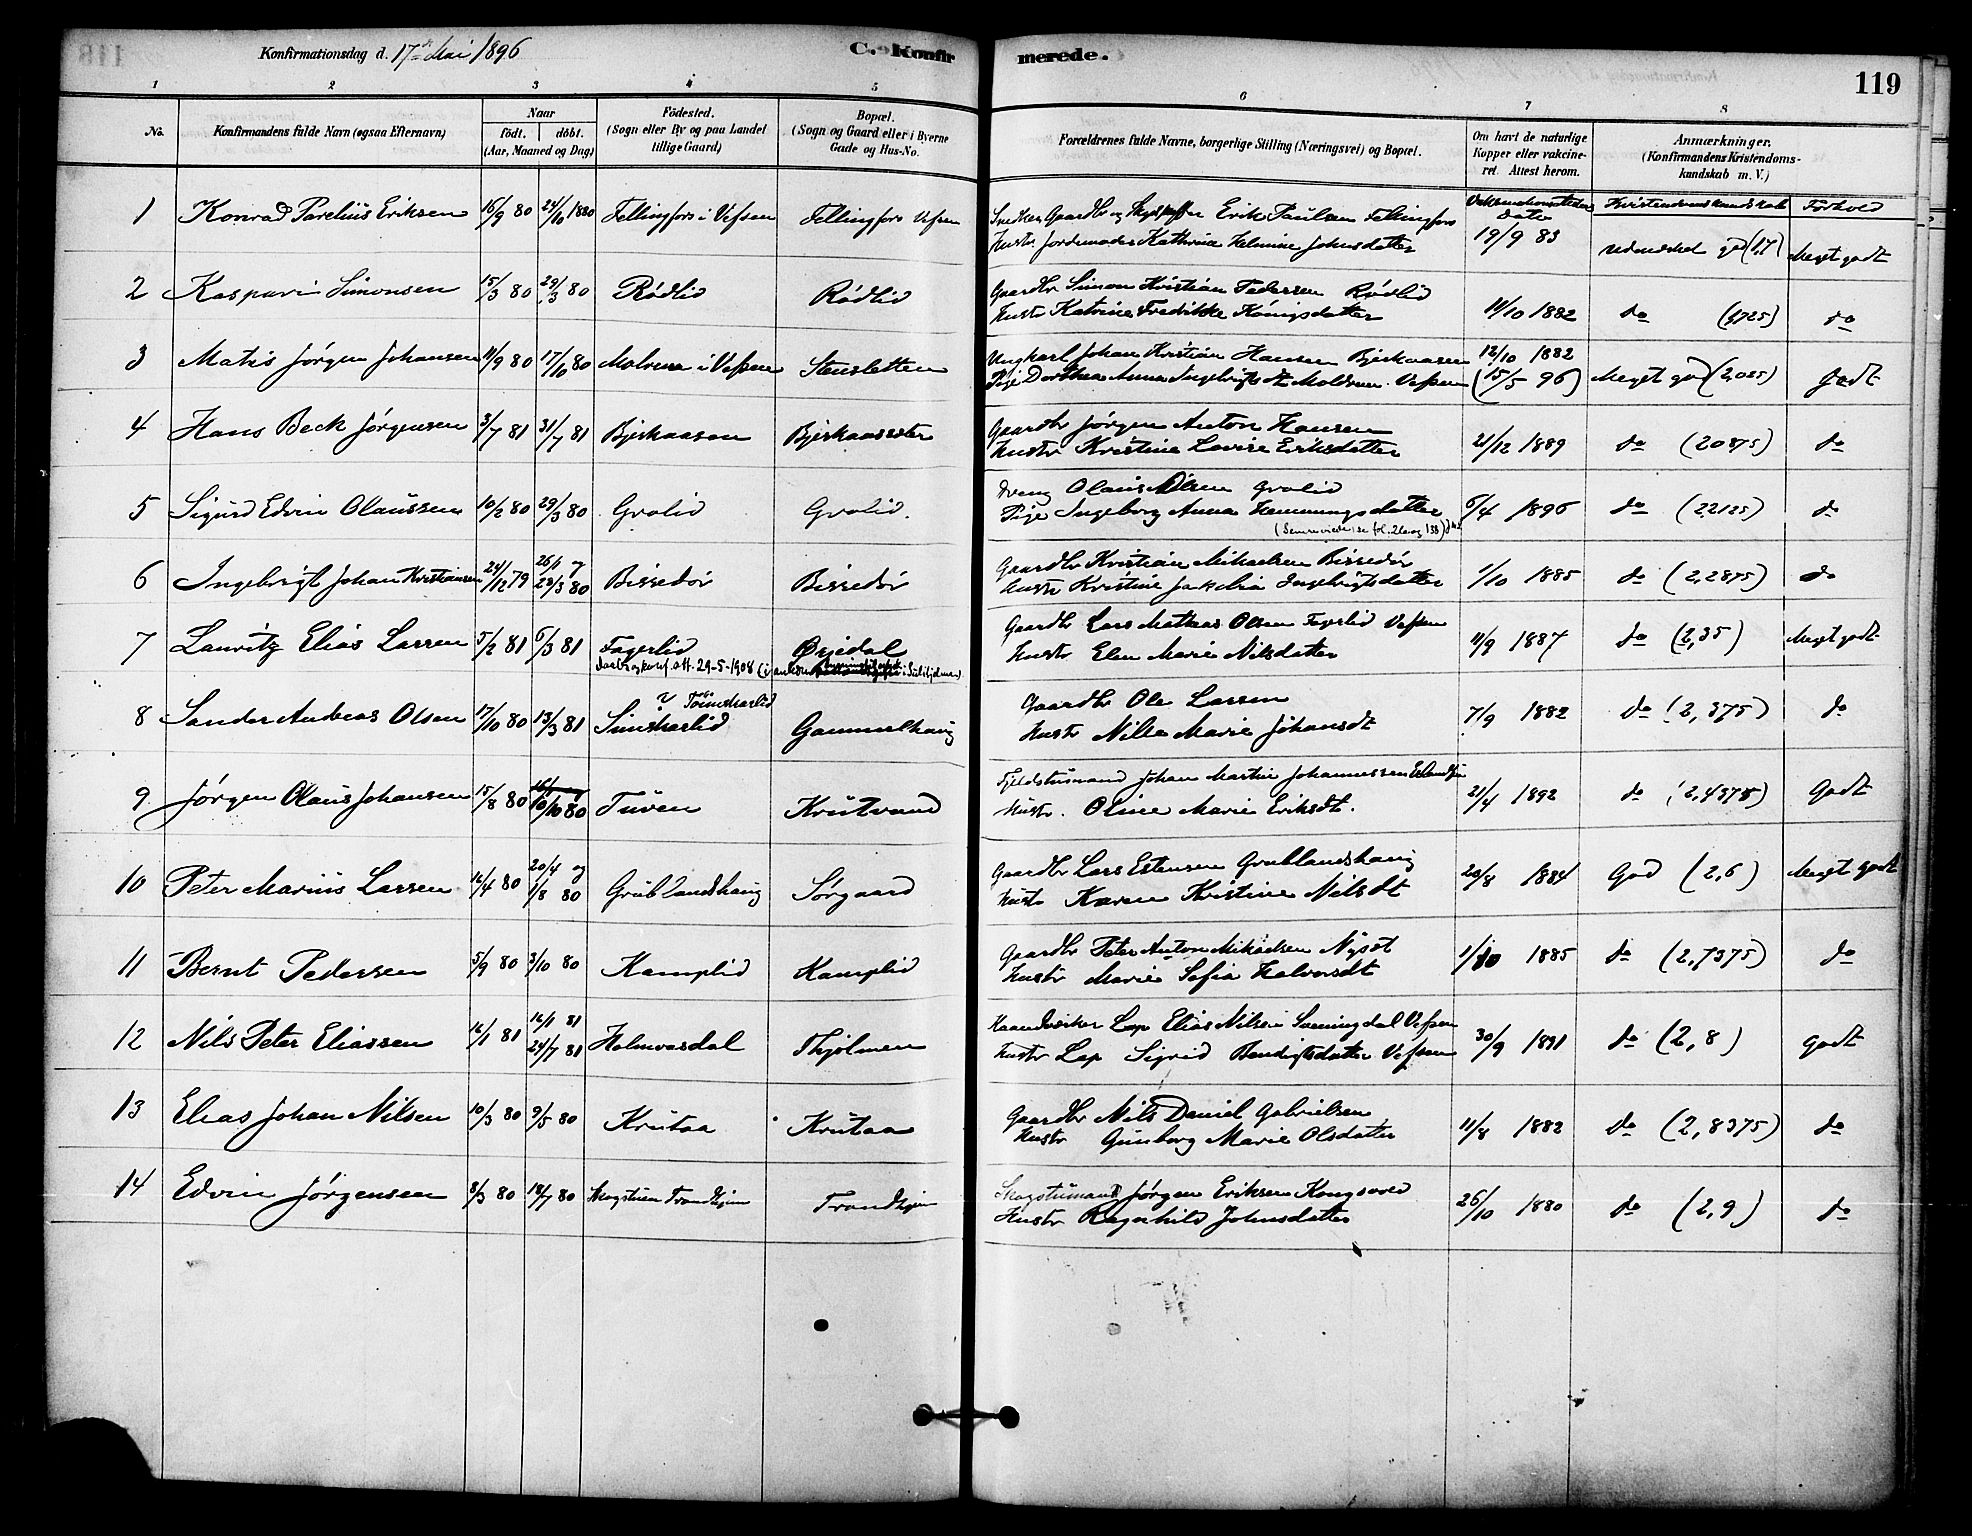 Konfirmationsdag d. 17de Mai 1896
C. Konfirmerede.
119
1 2 3 4 5 6 7 8
No.
Konfirmandens fulde Navn (ogsaa Efternavn)
Naar
født. døbt.
(Aar, Maaned og Dag)
Födested.
(Sogn eller By og paa Landet
tillige Gaard)
Bopæl.
(Sogn og Gaard eller i Byerne
Gade og Hus-No.
Forældrenes fulde Navne, borgerlige Stilling (Næringsvei) og Bopæl.
Om havt de naturlige
Kopper eller vakcine-
ret. Attest herom.
Anmærkninger.
(Konfirmandens Kristendoms-
kundskab m. V.)
Kristendomskundskab Forhold
1 Konrad Parelius Eriksen 16/9 80 24/10 1880 Fellingfors i Vefsen Fellingfors Vefsen
Gaardbr og Erik Paulsen Fellingfors
Hustr Jordemoder Kathrina Helmine Johnsdatter 19/9 83 udmerket god (1,7) Meget godt
2 Kaspara Simonsen 15/3 80 29/3 80 Rødlid Rødlid
Gaardbr Simon Kristian Pedersen Rødlid
Hustr Katrine Fredrikke Königsdatter 11/10 1882 do (1,725) do
3 Matis Jørgen Johansen 11/9 80 17/10 80 i Vefsen Stensletten
Ungkarl Johan Kristian Hansen Bjerkaasen 12/10 1882
Pige Dorthea Anna Ingebrigtsdt Vefsen (15/5 96) Meget god (2,025) godt
4 Hans Beck Jørgensen 3/7 81 31/7 81 Bjerkaasen Bjerkaasseter
Gaardbr Jørgen Anton Hansen
Hustr Kristine Lovise Eriksdatter 21/12 1889 do (2,0875) do
5 Sigurd Edvin Olaussen 10/2 80 29/3 80 Grolid Grolid.
Dreng Olaus Olsen Grolid
Pige Ingeborg Anna Hemmingsdatter 6/4 1896 do (2,2125) do
6 Ingebrigt Johan Kristiansen 24/12 79 26/1 og 28/3 80 Bissedør Bissedør
Gaardbr Kristian Mikaelsen Bissedør
Hustr Kristine Jakobia Ingebrigtsdatter 1/10 1885 do (2,2875) do
7 Lauritz Elias Larsen 5/2 81 6/3 81 Fagerlid Øiedal
Gaardbr Lars Mathias Olsen Fagerlid Vefsen
Hustr Elen Marie Nilsdatter 11/9 1887 do (2,35) Meget godt
8 Sander Andreas Olsen 17/10 80 13/3 81 Simskarlid Gammelhaug
Gaardbr Ole Larsen
Hustr Nilea Marie Johansdt 7/9 1882 do (2,375) do
9 Jørgen Olaus Johansen 15/8 80 10/10 80 Tuven Krutvand
Fjeldstumand Johan Martin Johannessen
Hustr. Oline Marie Eriksdt. 21/4 1892 do (2,4375) Godt
10 Peter Marius Larsen 16/4 80 20/4 og 1/8 80 Grublandshaug Sørgaard
Gaardbr Lars Estensen Grublandshaug
Hustr Karen Kristine Nilsdt 20/8 1884 God (2,6) Meget godt
11 Bernt Pedersen 5/9 80 3/10 80 Kamplid Kamplid
Gaardbr Peter Anton Mikaelsen
Hustr Marie Sofia Halvorsdt 1/10 1885 do (2,7375) do
12 Nils Peter Eliassen 16/1 81 16/1 81 24/7 81 Holmvasdal Thjølmen
Haandverker Lap Elias Nilsen Vefsen
Hustr Lap Sigrid Bendigtsdatter Vefsen 30/9 1891 do (2,8) godt
13 Elias Johan Nilsen 10/3 80 9/5 80 Krutaa Krutaa
Gaardbr Nils Daniel Gabrielsen
Hustr Gunborg Marie Olsdatter 11/8 1882 do (2,8375) do
14 Edvin Jørgensen 8/3 80 18/7 80 Skogstuen Trondhjem Trondhjem
Skogstumand Jørgen Eriksen Kongsvold
Hustr Ragnhild Johnsdatter 26/10 1880 do (2,9) do